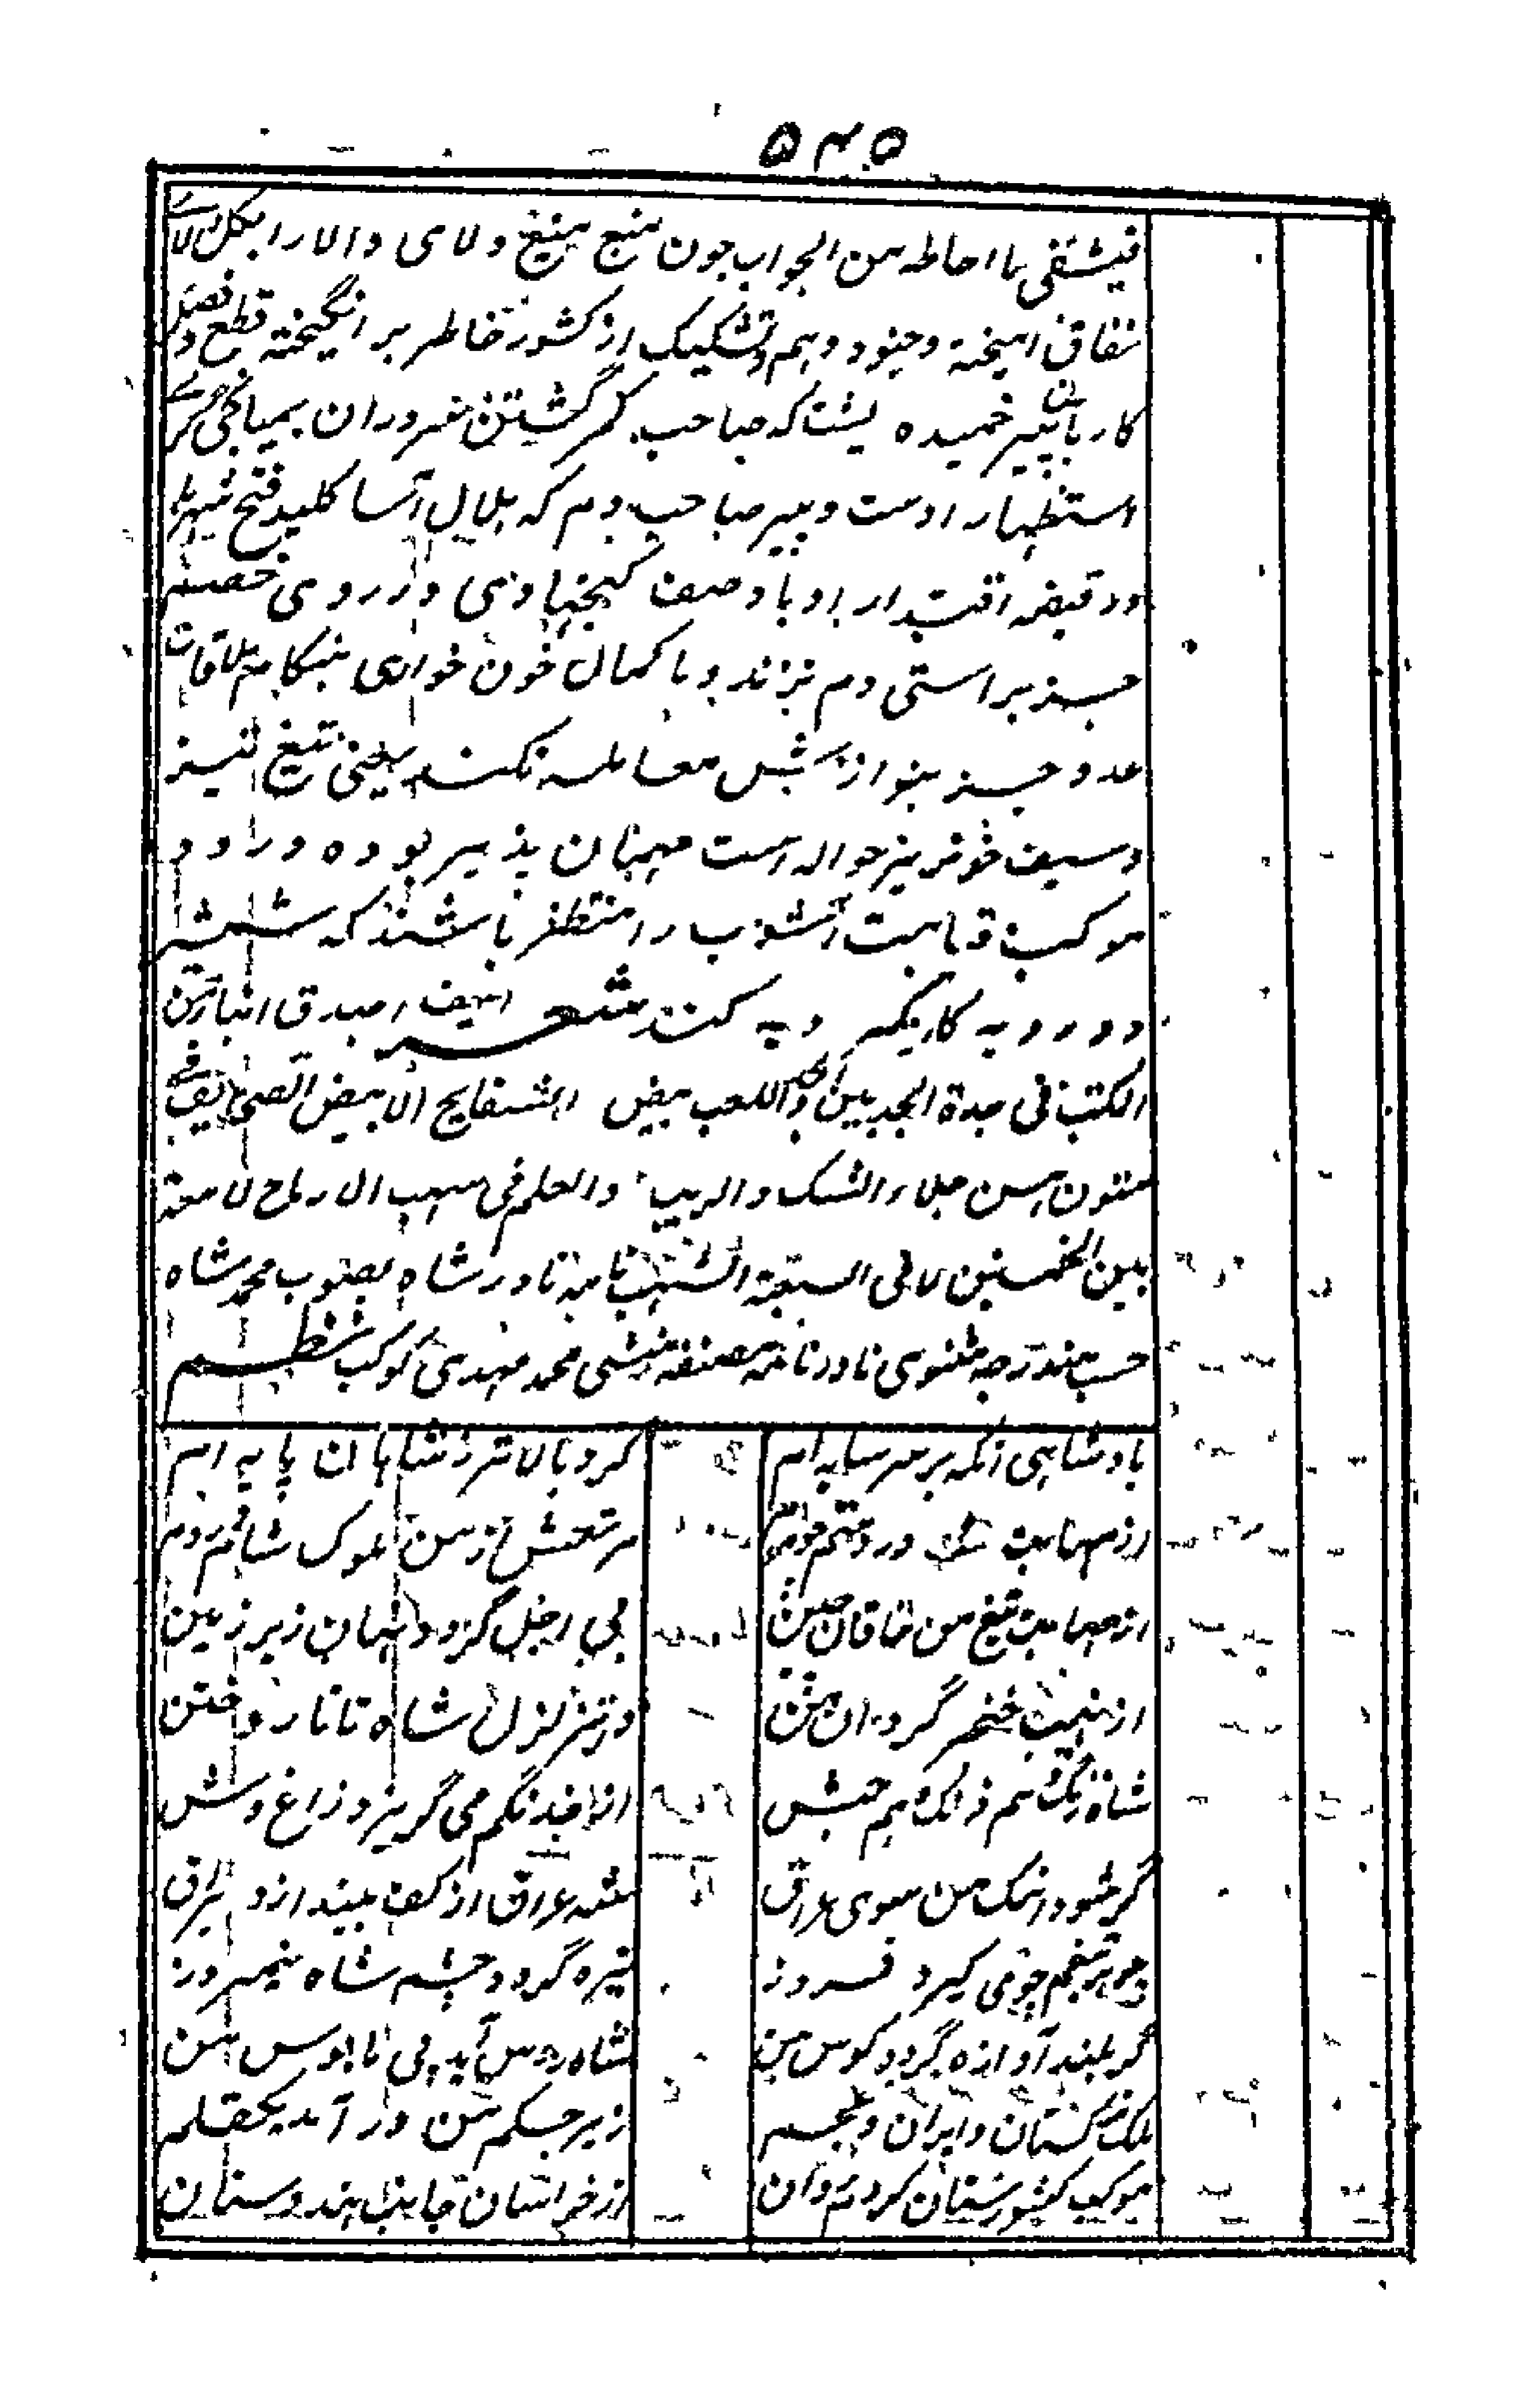 ۵۴۵
فیشقی ما احاطه من الجواب چون منبع منیع ولای والا را بکل لای
نفاق امیخته و جنود وهم و تشکیک از کشور خاطر بر انگیخته قطع و فصل
کار بآن پیر خمیده پشت که صاحب گرم گشتن خسروران بمیانجی گری
استظهار اوست و پیر صاحب دم که هلال آسا کلید فتح شهرها
در قبضه اقتدار او با وصف کجنهادی در روی خصم
جز براستی دم نزند و با کمال خون خواری هنگام ملاقات
عدو جز بنوازش معامله نکند یعنی تیغ تیز
و سیف خونریز حواله است مهمان پذیر بوده ورود
موکب قیامت آشوب را منتظر باشند که شمشیر
دو رویه کار یکرویه کند شعر السیف اصدق انباء من
الکتب فی حده الحد بین الجد واللعب بیض الصفایح لا بیض الصحایف فی
متونهن جلاء الشک والریب والعلم فی شهب الارماح لامعة
بین الخمسین لا فی السبعة الشهب نامه نادر شاه بصوب محمد شاه
حسب مندرجه مثنوی نادر نامه مصنفه منشی محمد مهدی کوکب نظم
بادشاهی آنکه بر سر سایه ام کرد بالاتر ز شاهان پایه ام
مرتعش از من ملوک شام و روم
از مهابت تیغ من خاقان چین بی اجل گردد نهان زیر زمین
از نهیب خنجر گردان من در تزلزل شاه تاتار و ختن
شاه زنگ و هم ملک هم حبش از خدنگم می گریزد زاغ وش
گر شود آهنگ من سوی عراق شه عراق از کف بیندازد یراق
پرتو تیغم چو می گیرد فروز خیره گردد چشم شاه نیمروز
گر بلند آوازه گردد کوس من شاه روس آید پی پابوس من
ملک ترکستان و ایران و عجم زیر حکم من در آمد یکقلم
موکب کشورستان کردم روان از خراسان جانب هندوستان